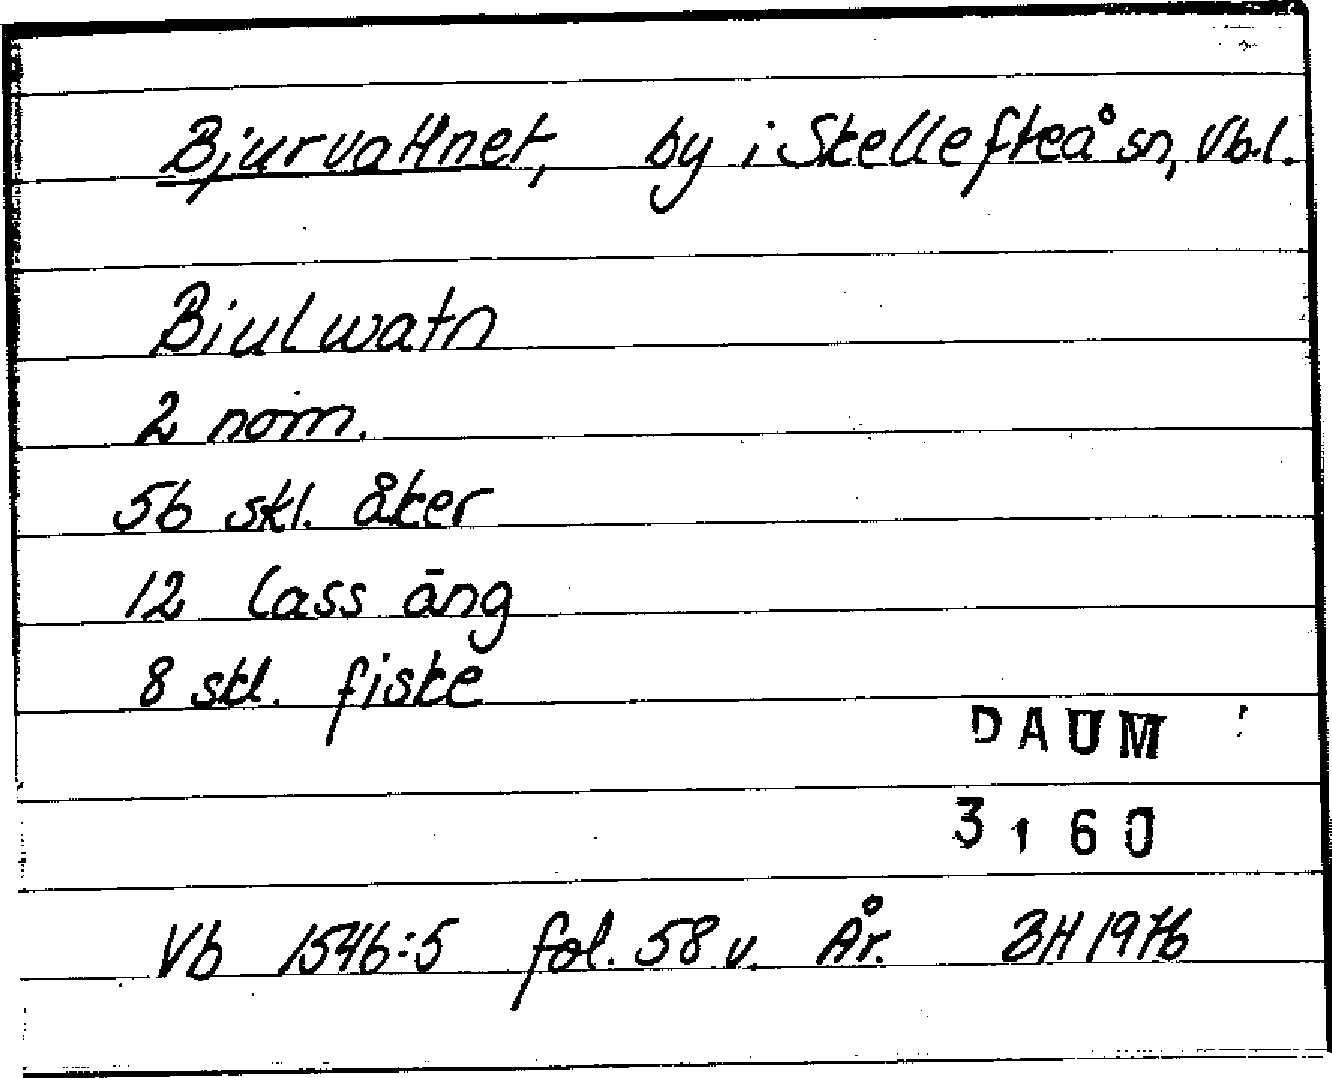 Bjurvattnet, by i Skellefteå sn, Vb.l.
Biulwatn
2 nom.
56 skl. åker
12 lass äng
8 skl. fiske
DAUM
3160
Vb 1546:5 fol. 58 v. År. BH 1976